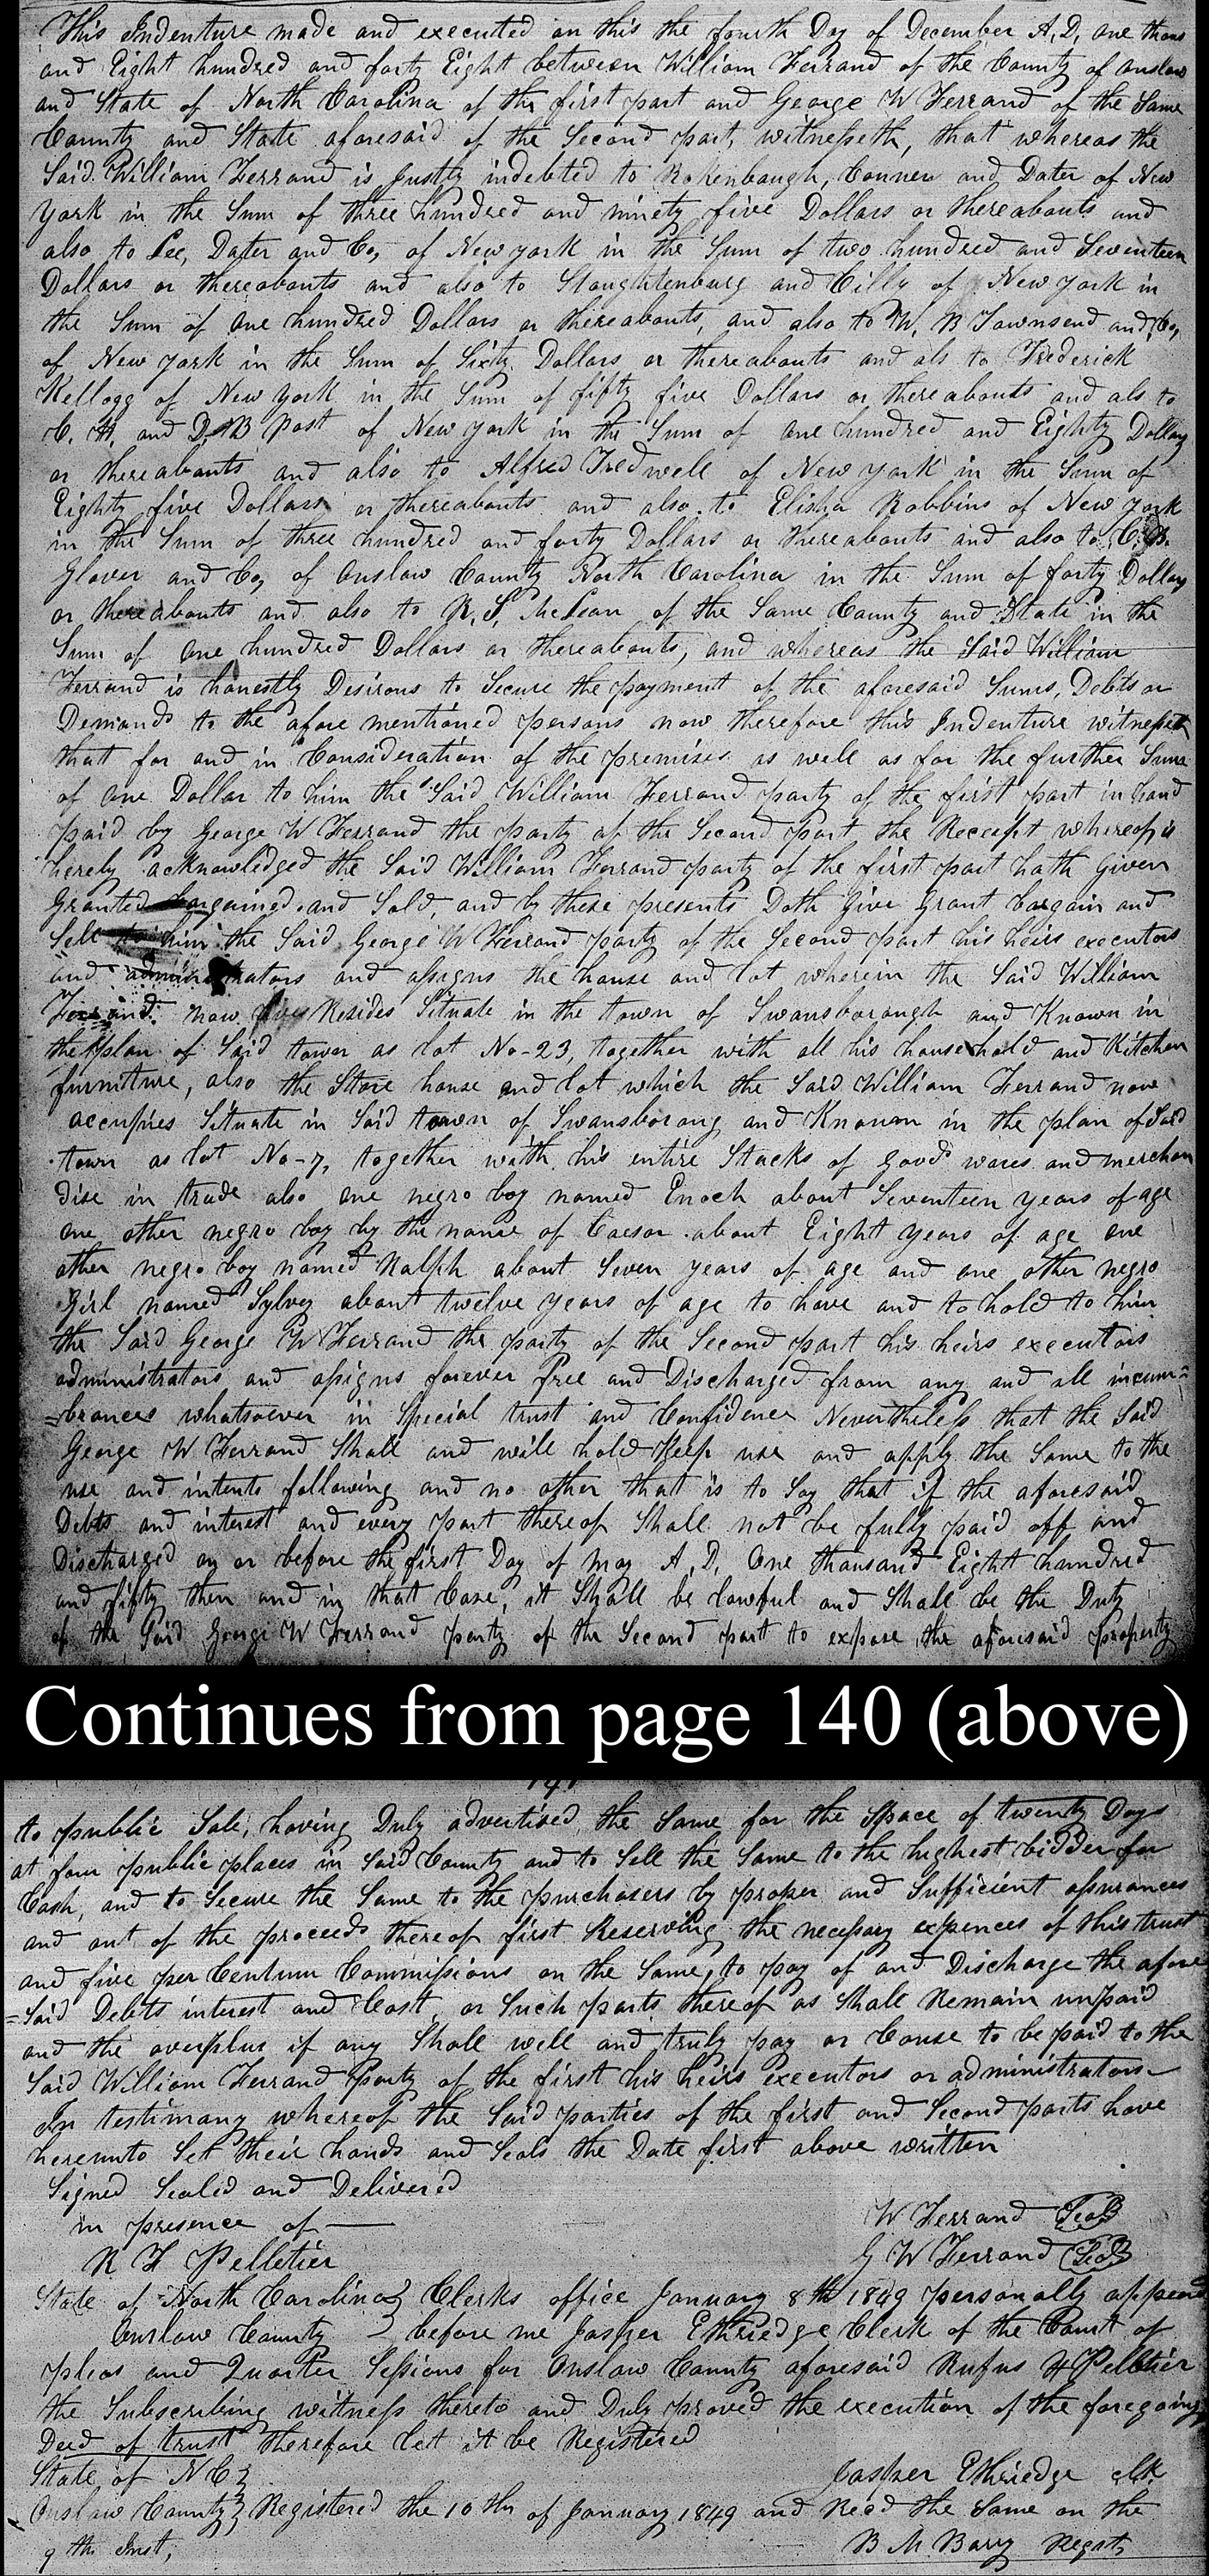 This Indenture made and executed on this the fourth Day of December A,D, one thous
and Eight hundred and forty Eight between William Ferrand of the County of Onslow
and State of North Carolina of the first part and George W Ferrand of the Same
County and State aforesaid of the Second part, witnesseth, that whereas the
Said William Ferrand is Justly indebted to Rokenbaugh, Conner and Dater of New
York in the Sum of three hundred and ninety five Dollars or thereabouts and
also to Lee, Dater and Co, of New york in the Sum of two hundred and Seventeen
Dollars or thereabouts and also to Stoughtenburg and Cilly of New york in
the Sum of one hundred Dollars or thereabouts, and also to W, B Townsend and Co,
of New york in the Sum of Sixty Dollars or thereabouts and als to Frederick
Kellogg of New york in the Sum of fifty five Dollars or thereabouts and als to
C. H, and D, B Post of New york in the Sum of one hundred and Eighty Dollars
or thereabouts and also to Alfred Tredwell of New york in the Sum of
Eighty five Dollars or thereabouts and also to Elisha Robbins of New york
in the Sum of three hundred and forty Dollars or thereabouts and also to C.
Glover and Co, of Onslow County North Carolina in the Sum of forty Dollars
or thereabouts and also to R, S, McLean of the Same County and State in the
Sum of one hundred Dollars or thereabouts, and whereas the Said William
Ferrand is honestly Desirous to Secure the payment of the aforesaid Sums, Debts or
Demands to the afore mentioned persons now therefore this Indenture witnesseth
that for and in Consideration of the premises as well as for the further Sum
of one Dollar to him the Said William Ferrand party of the first part in hand
paid by George W Ferrand the party of the Second part the Receipt whereof is
hereby acknowledged the Said William Ferrand party of the first part hath Given
Granted bargained and Sold, and by these presents Doth Give Grant bargain and
Sell to him the Said George W Ferrand party of the Second part his heirs executors
and administrators and assigns the house and lot wherein the Said William
Ferrand now Resides Situate in the town of Swansborough and Known in
the plan of Said town as lot No-23, together with all his household and Kitchen
furniture, also the Store house and lot which the Said William Ferrand now
accupies Situate in Said town of Swansboroug and Known in the plan of Said
town as lot No-7, together with his entire Stocks of goods wares and merchan
dise in trade also one negro boy named Enoch about Seventeen years of age
one other negro boy by the name of Caesar about Eight years of age one
other negro boy named Ralph about Seven years of age and one other negro
Girl named Sylvey about twelve years of age to have and to hold to him
the Said George W Ferrand the party of the Second part his heirs executors
administrators and assigns forever free and Discharged from any and all incum=
=brances whatsoever in Special trust and Confidence Nevertheless that the Said
George W Ferrand Shall and will hold Keep use and apply the Same to the
use and intents following and no other that is to Say that if the aforesaid
Debts and interest and every part thereof Shall not be fully paid off and
Discharged on or before the first Day of may A,D, One thousand Eight hundred
and fifty then and in that Case, it Shall be lawful and Shall be the Duty
of the Said George W Ferrand party of the Second part to expose the aforesaid property
Continues from page 140 (above)
141
to public Sale, having Duly advertised the Same for the Space of twenty Days
at four public places in Said County and to Sell the Same to the highest bidder for
Cash, and to Secure the Same to the purchasers by proper and Sufficient assurances
and out of the proceeds thereof first Reserving the necessary expences of this trust
and five per Centum Commissions on the Same, to pay of and Discharge the afore
=Said Debts interest and Cost, or Such parts thereof as Shall Remain unpaid
and the overplus if any Shall well and truly pay or Cause to be paid to the
Said William Ferrand Party of the first his heirs executors or administrators
In testimony whereof the Said parties of the first and Second parts have
hereunto Set their hands and Seals the Date first above written
Signed Sealed and Delivered
in presence of
W Ferrand Seal
R H Pelletier
G W Ferrand Seal
State of North Carolina Clerks office January 8th 1849 personally appeared
Onslow County before me Jasper Ethriedge Clerk of the Court of
pleas and Quarter Sessions for Onslow County aforesaid Rufus H Pelletier
the Subscribing witness thereto and Duly proved the execution of the foregoing
Deed of trust therefore let it be Registered
State of N C
Jasper Ethriedge clk
Onslow County Registered the 10th of January 1849 and Recd the Same on the
9th Inst,
B M Barry Regst,